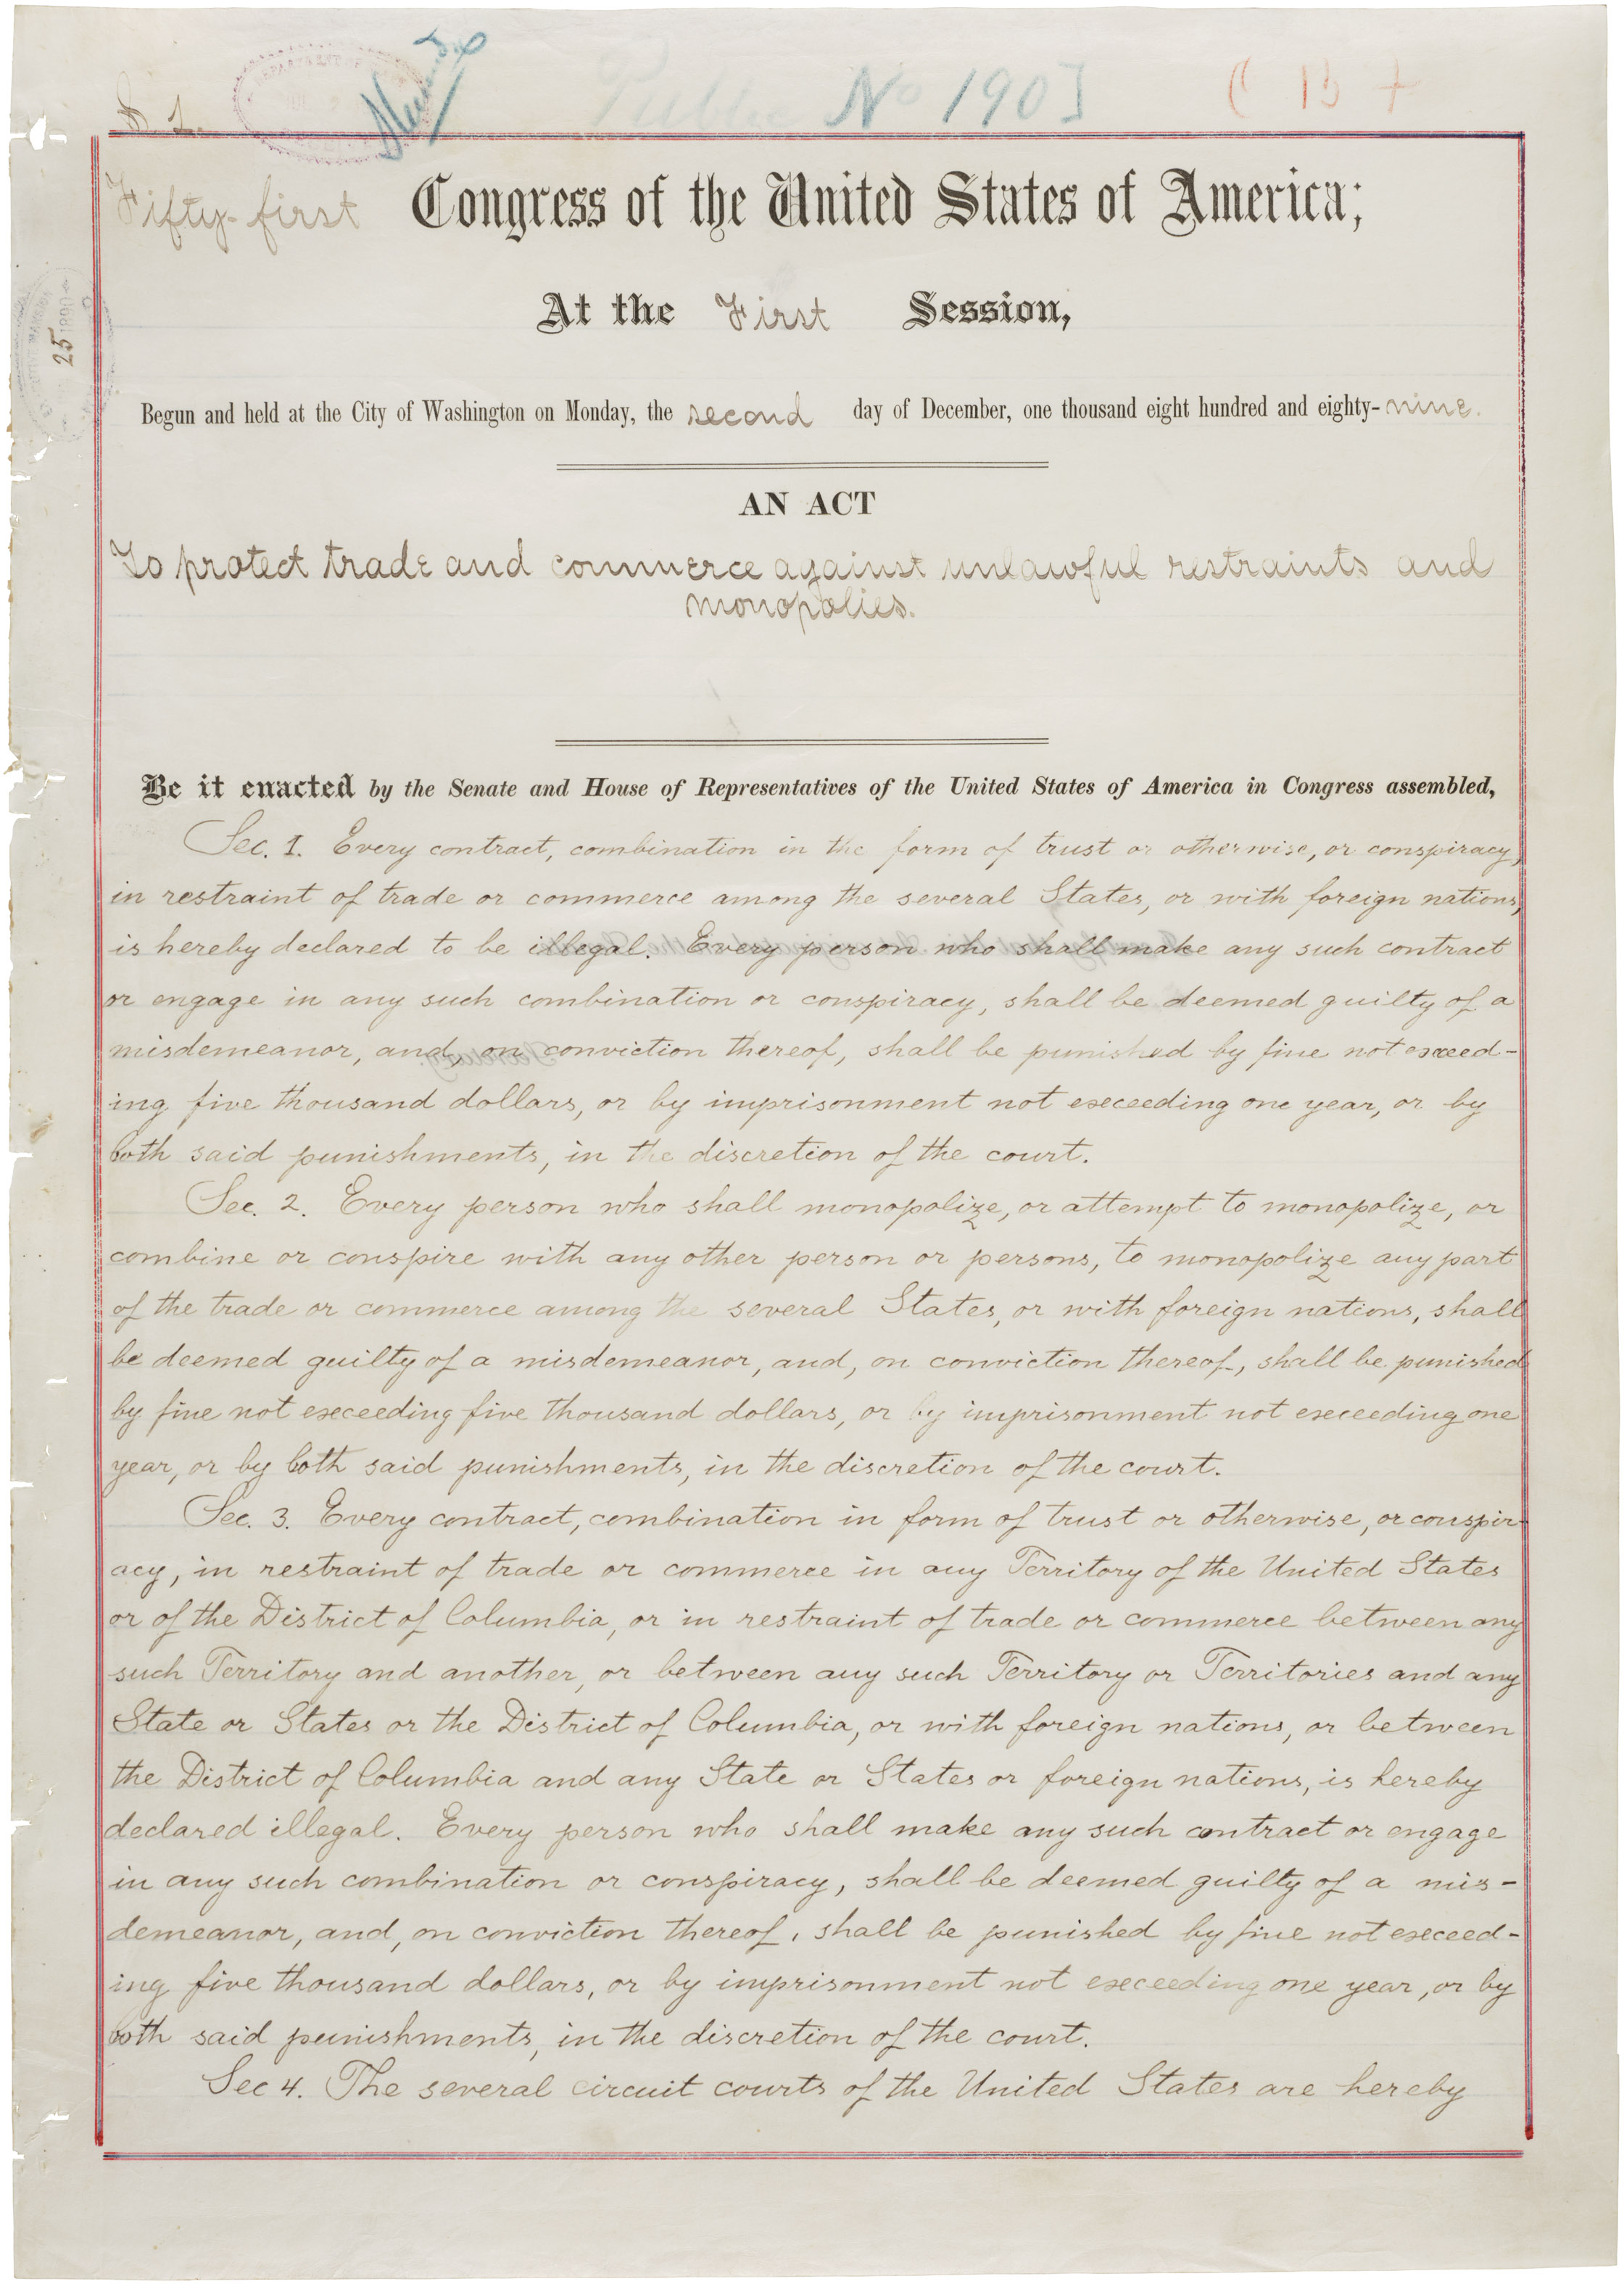 S. 1.
Public No 190]
Fifty-first Congress of the United States of America;
At the First Session,
Begun and held at the City of Washington on Monday, the second day of December, one thousand eight hundred and eighty-nine.
25 1890
AN ACT
To protect trade and commerce against unlawful restraints and
monopolies.
Be it enacted by the Senate and House of Representatives of the United States of America in Congress assembled,
Sec. 1. Every contract, combination in the form of trust or otherwise, or conspiracy,
in restraint of trade or commerce among the several States, or with foreign nations,
is hereby declared to be illegal. Every person who shall make any such contract
or engage in any such combination or conspiracy, shall be deemed guilty of a
misdemeanor, and, on conviction thereof, shall be punished by fine not exceed-
ing five thousand dollars, or by imprisonment not exceeding one year, or by
both said punishments, in the discretion of the court.
Sec. 2. Every person who shall monopolize, or attempt to monopolize, or
combine or conspire with any other person or persons, to monopolize any part
of the trade or commerce among the several States, or with foreign nations, shall
be deemed guilty of a misdemeanor, and, on conviction thereof, shall be punished
by fine not exceeding five thousand dollars, or by imprisonment not exceeding one
year, or by both said punishments, in the discretion of the court.
Sec. 3. Every contract, combination in form of trust or otherwise, or conspir-
acy, in restraint of trade or commerce in any Territory of the United States
or of the District of Columbia, or in restraint of trade or commerce between any
such Territory and another, or between any such Territory or Territories and any
State or States or the District of Columbia, or with foreign nations, or between
the District of Columbia and any State or States or foreign nations, is hereby
declared illegal. Every person who shall make any such contract or engage
in any such combination or conspiracy, shall be deemed guilty of a mis-
demeanor, and, on conviction thereof, shall be punished by fine not exceed-
ing five thousand dollars, or by imprisonment not exceeding one year, or by
both said punishments, in the discretion of the court.
Sec 4. The several circuit courts of the United States are hereby